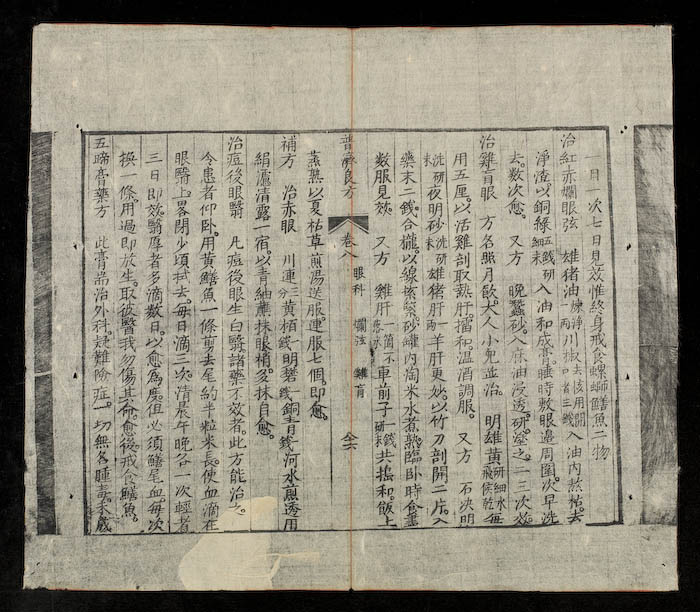 一日一次七日見效惟終身戒食螺螄鱔魚二物
治紅赤爛眼弦 雄猪油煉淨一兩川椒去核用開口者三錢入油內熬枯去
淨渣以銅綠五錢研細末入油和成膏睡時敷眼邊周圍次早洗
去數次愈 又方 晚蠶砂入麻油浸透研塗之二三次效
治雞盲眼 方名照月飲大人小兒並治 明雄黃研細水飛候乾每
用五厘以活雞剖取熱肝擂和温酒調服 又方 石決明
洗研末夜明砂洗研末雄猪肝一兩羊肝更妙以竹刀剖開二片入
藥末二錢合攏以線紮緊砂罐內淘米水煮熟臨卧時食盡
數服見效 又方 雞肝一箇不落水車前子一錢研末共搗和飯上
普濟良方 卷八 眼科 爛注 雞盲 全六
蒸熟以夏枯草煎湯送服連服七個即愈
補方 治赤眼 川連三分黃栢一錢明礬一錢銅青一錢河水熬透用
絹濾清露一宿以青紬蘸抹眼梢多抹自愈
治痘後眼翳 凡痘後眼生白翳諸藥不效者此方能治之
令患者仰卧用黃鱔魚一條剪去尾約半粒米長使血滴在
眼翳上畧閉少頃拭去每日滴三次清晨午晚各一次輕者
三日即效翳厚者多滴數日以愈為度但必須鱔尾血每次
換一條用過即放生取彼醫我勿傷其命愈後戒食鱔魚
五蹄膏藥方 此膏耑治外科疑難險症一切無名腫毒未成